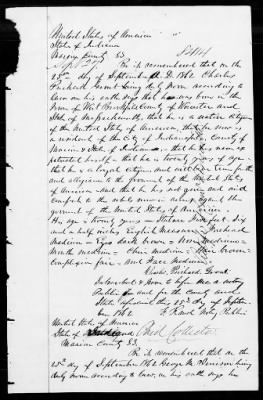 United States of America
State of Indiana
Marion County SS.
Be it remembered that on the
23rd day of September A.D. 1862 Charles
Prichard Grout being duly sworn according to
Law on his oath says that he was born in the
Town of West Brookfield County of Worcester and
State of Massachusetts, that he is a native citizen
of the United States of America, that he now is
a resident of the City of Indianapolis, County of
Marion & State of Indiana, that he has never ex
patriated himself - that he is twenty years of age -
that he is a loyal citizen and will bear true faith
and allegiance to the government of the United States
of America and that he has not given and aid
comfort to the rebels now in arms against the
government of the United States of America.
His age is twenty years - Stature five feet six
and a half inches English Measure - Forehead
Medium - Eyes dark brown - Nose medium -
Mouth medium - Chin Medium - Hair brown -
Complexion fair - and Face Medium -
Charles Prichard Grout
Subscribed & sworn to before me a notary
Public in and for the County and
State aforesaid this 23rd day of Septem
ber 1862
Notary Public
United States of America
State of Indiana
Marion County SS.
Be it remembered that on the
23rd day of September 1862 George M.
duly sworn according to law, on his oath says he